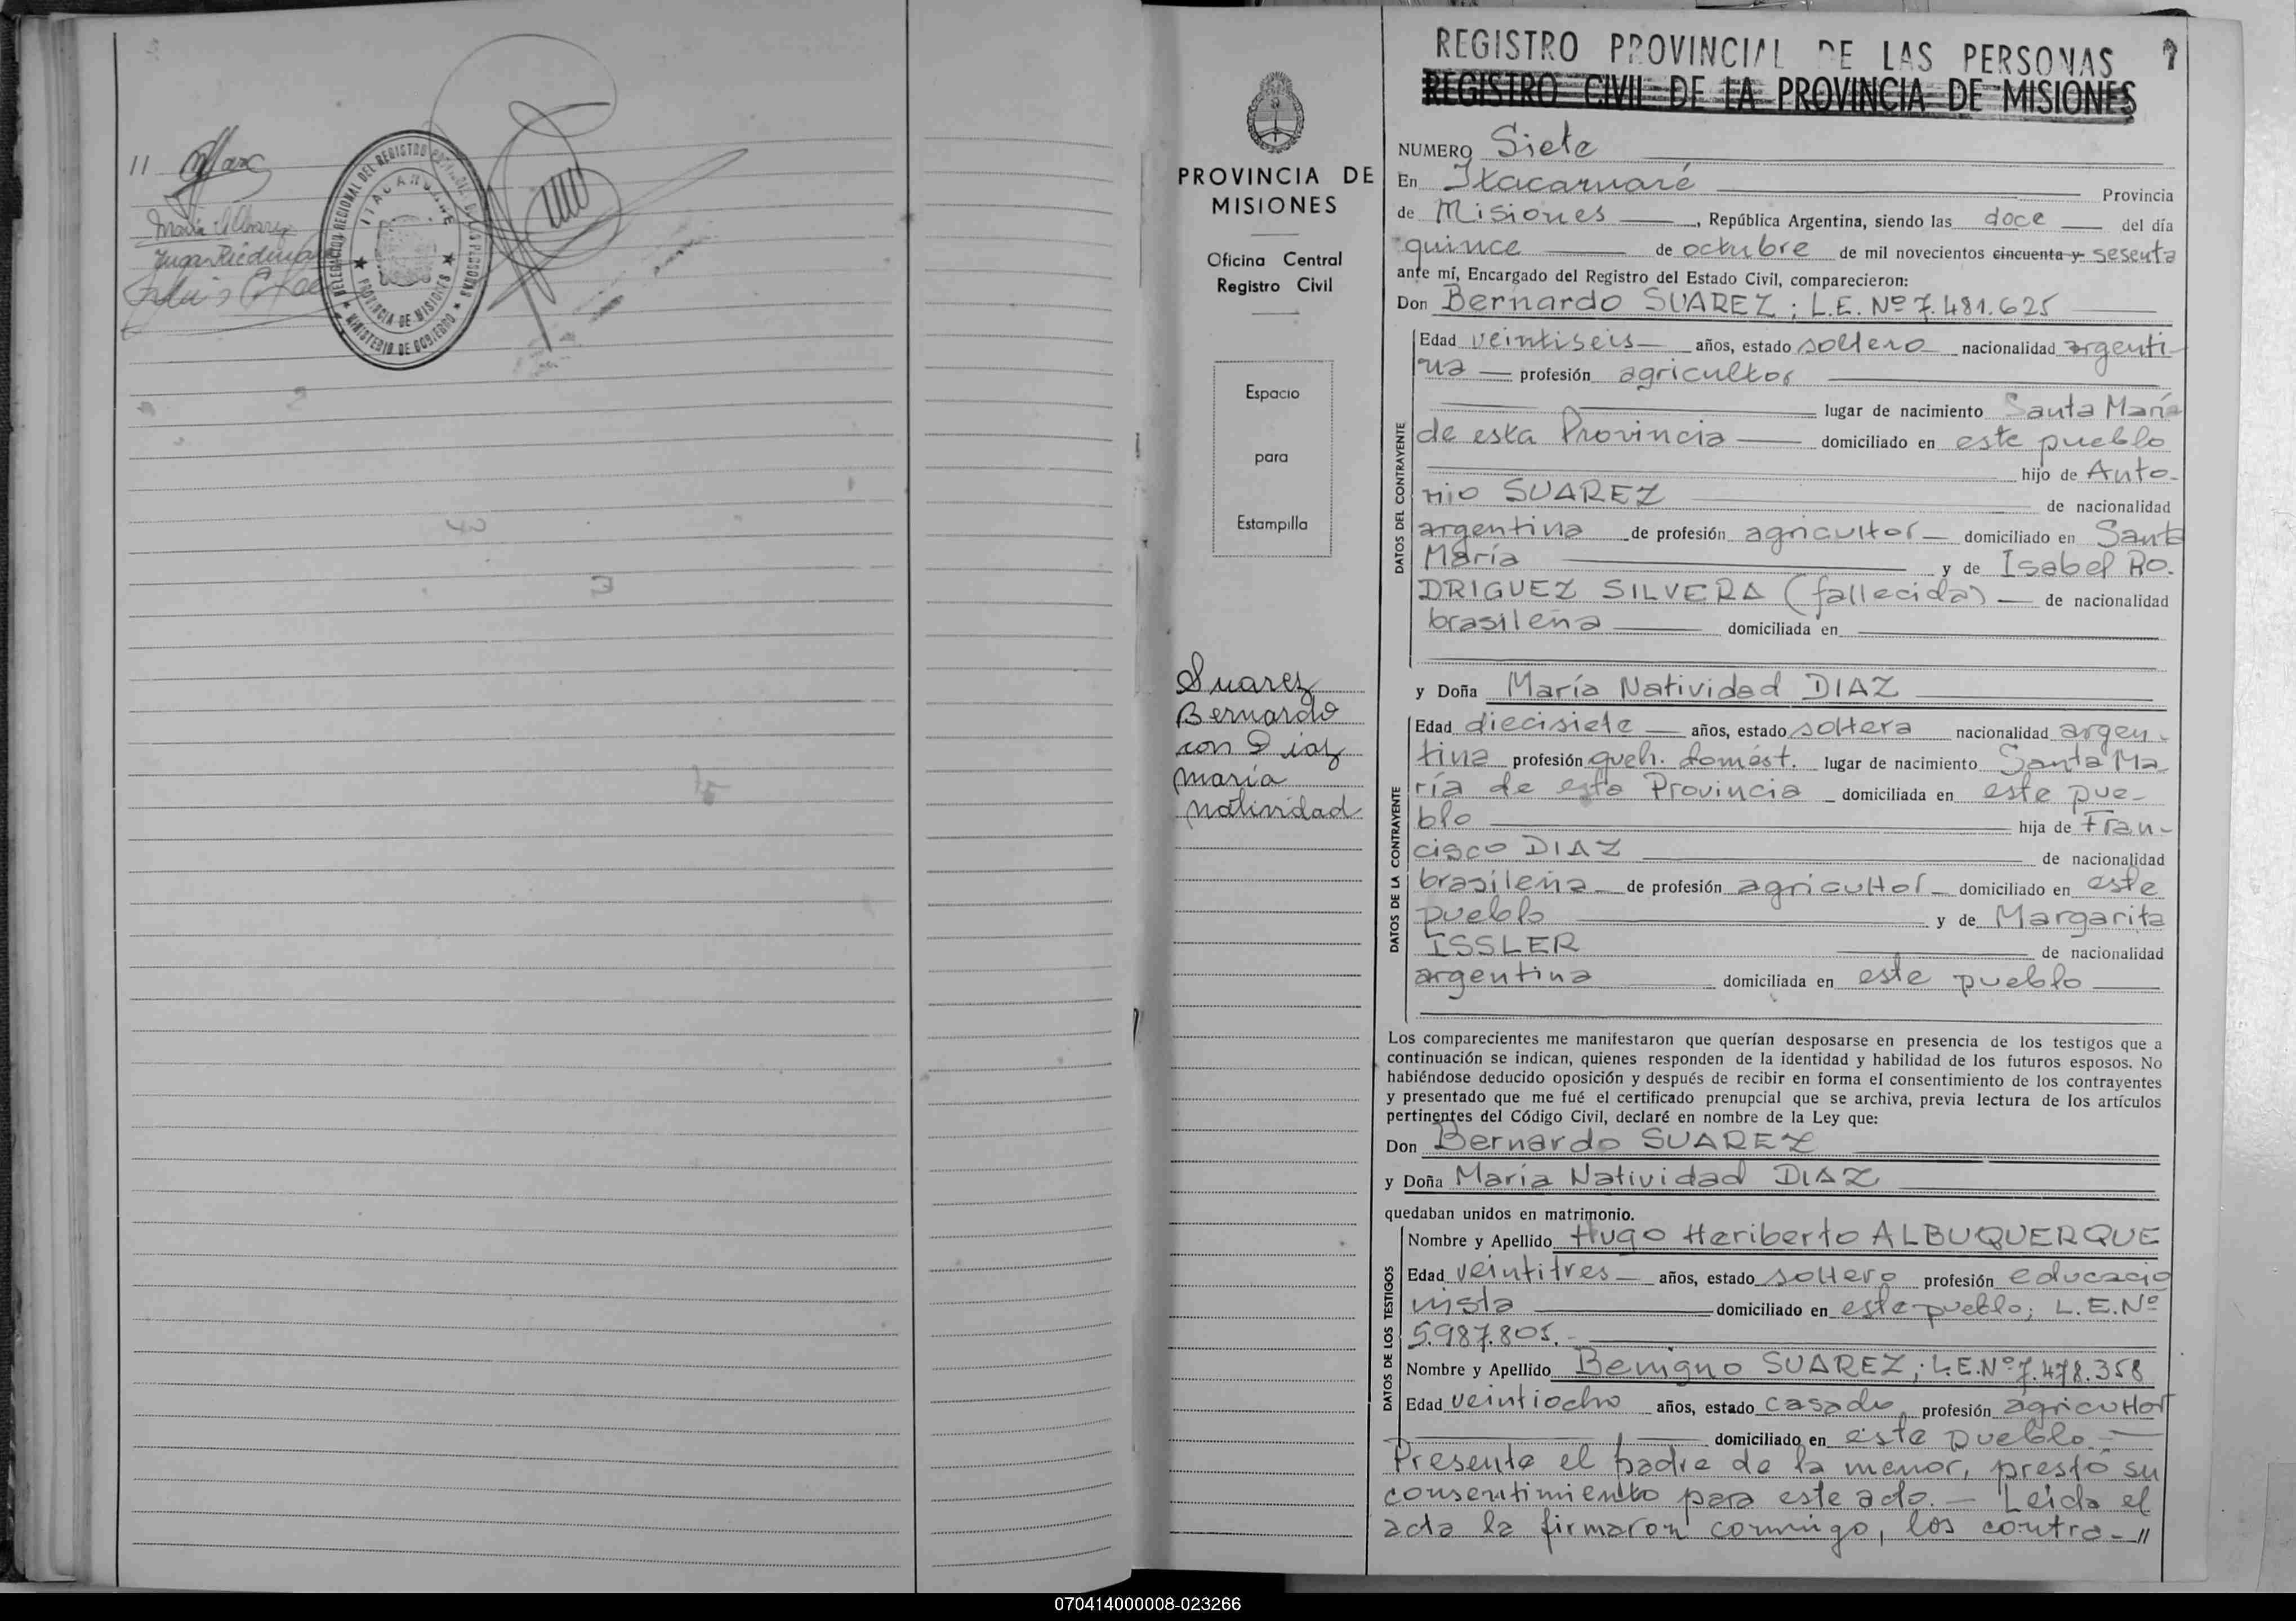 11
DELEGACIÓN REGIONAL DEL REGISTRO PROVINCIAL DE LAS PERSONAS
ITACARUARE
PROVINCIA DE MISIONES
MINISTERIO DE GOBIERNO
PROVINCIA DE
MISIONES
Oficina Central
Registro Civil
Espacio
para
Estampilla
Suarez
Bernardo
con Diaz
maria
natividad
REGISTRO PROVINCIAL DE LAS PERSONAS 7
REGISTRO CIVIL DE LA PROVINCIA DE MISIONES
NUMERO Siete
En Itacaruaré Provincia
de Misiones, República Argentina, siendo las doce del día
quince de octubre de mil novecientos cincuenta y sesenta
ante mí, Encargado del Registro del Estado Civil, comparecieron:
Don Bernardo SUAREZ; L.E. Nº 7.481.625
DATOS DEL CONTRAYENTE
Edad veintiseis años, estado soltero nacionalidad argenti-
na profesión agricultor
lugar de nacimiento Santa María
de esta Provincia domiciliado en este pueblo
hijo de Anto-
nio SUAREZ de nacionalidad
argentina de profesión agricultor domiciliado en Santa
María y de Isabel RO-
DRIGUEZ SILVERA (fallecida) de nacionalidad
brasileña domiciliada en
y Doña María Natividad DIAZ
DATOS DE LA CONTRAYENTE
Edad diecisiete años, estado soltera nacionalidad argen-
tina profesión queh. domést. lugar de nacimiento Santa Ma-
ría de esta Provincia domiciliada en este pue-
blo hija de Fran-
cisco DIAZ de nacionalidad
brasileña de profesión agricultor domiciliado en este
pueblo y de Margarita
ISSLER de nacionalidad
argentina domiciliada en este pueblo
Los comparecientes me manifestaron que querían desposarse en presencia de los testigos que a
continuación se indican, quienes responden de la identidad y habilidad de los futuros esposos. No
habiéndose deducido oposición y después de recibir en forma el consentimiento de los contrayentes
y presentado que me fué el certificado prenupcial que se archiva, previa lectura de los artículos
pertinentes del Código Civil, declaré en nombre de la Ley que:
Don Bernardo SUAREZ
y Doña María Natividad DIAZ
quedaban unidos en matrimonio.
DATOS DE LOS TESTIGOS
Nombre y Apellido Hugo Heriberto ALBUQUERQUE
Edad veintitres años, estado soltero profesión educacio
nista domiciliado en este pueblo; L.E.Nº
5.987.805.-
Nombre y Apellido Benigno SUAREZ; L.E.Nº 7.478.358
Edad veintiocho años, estado casado, profesión agricultor
domiciliado en este pueblo.-
Presente el padre de la menor, prestó su
consentimiento para este acto.- Leída el
acta la firmaron conmigo, los contra-//
070414000008-023266